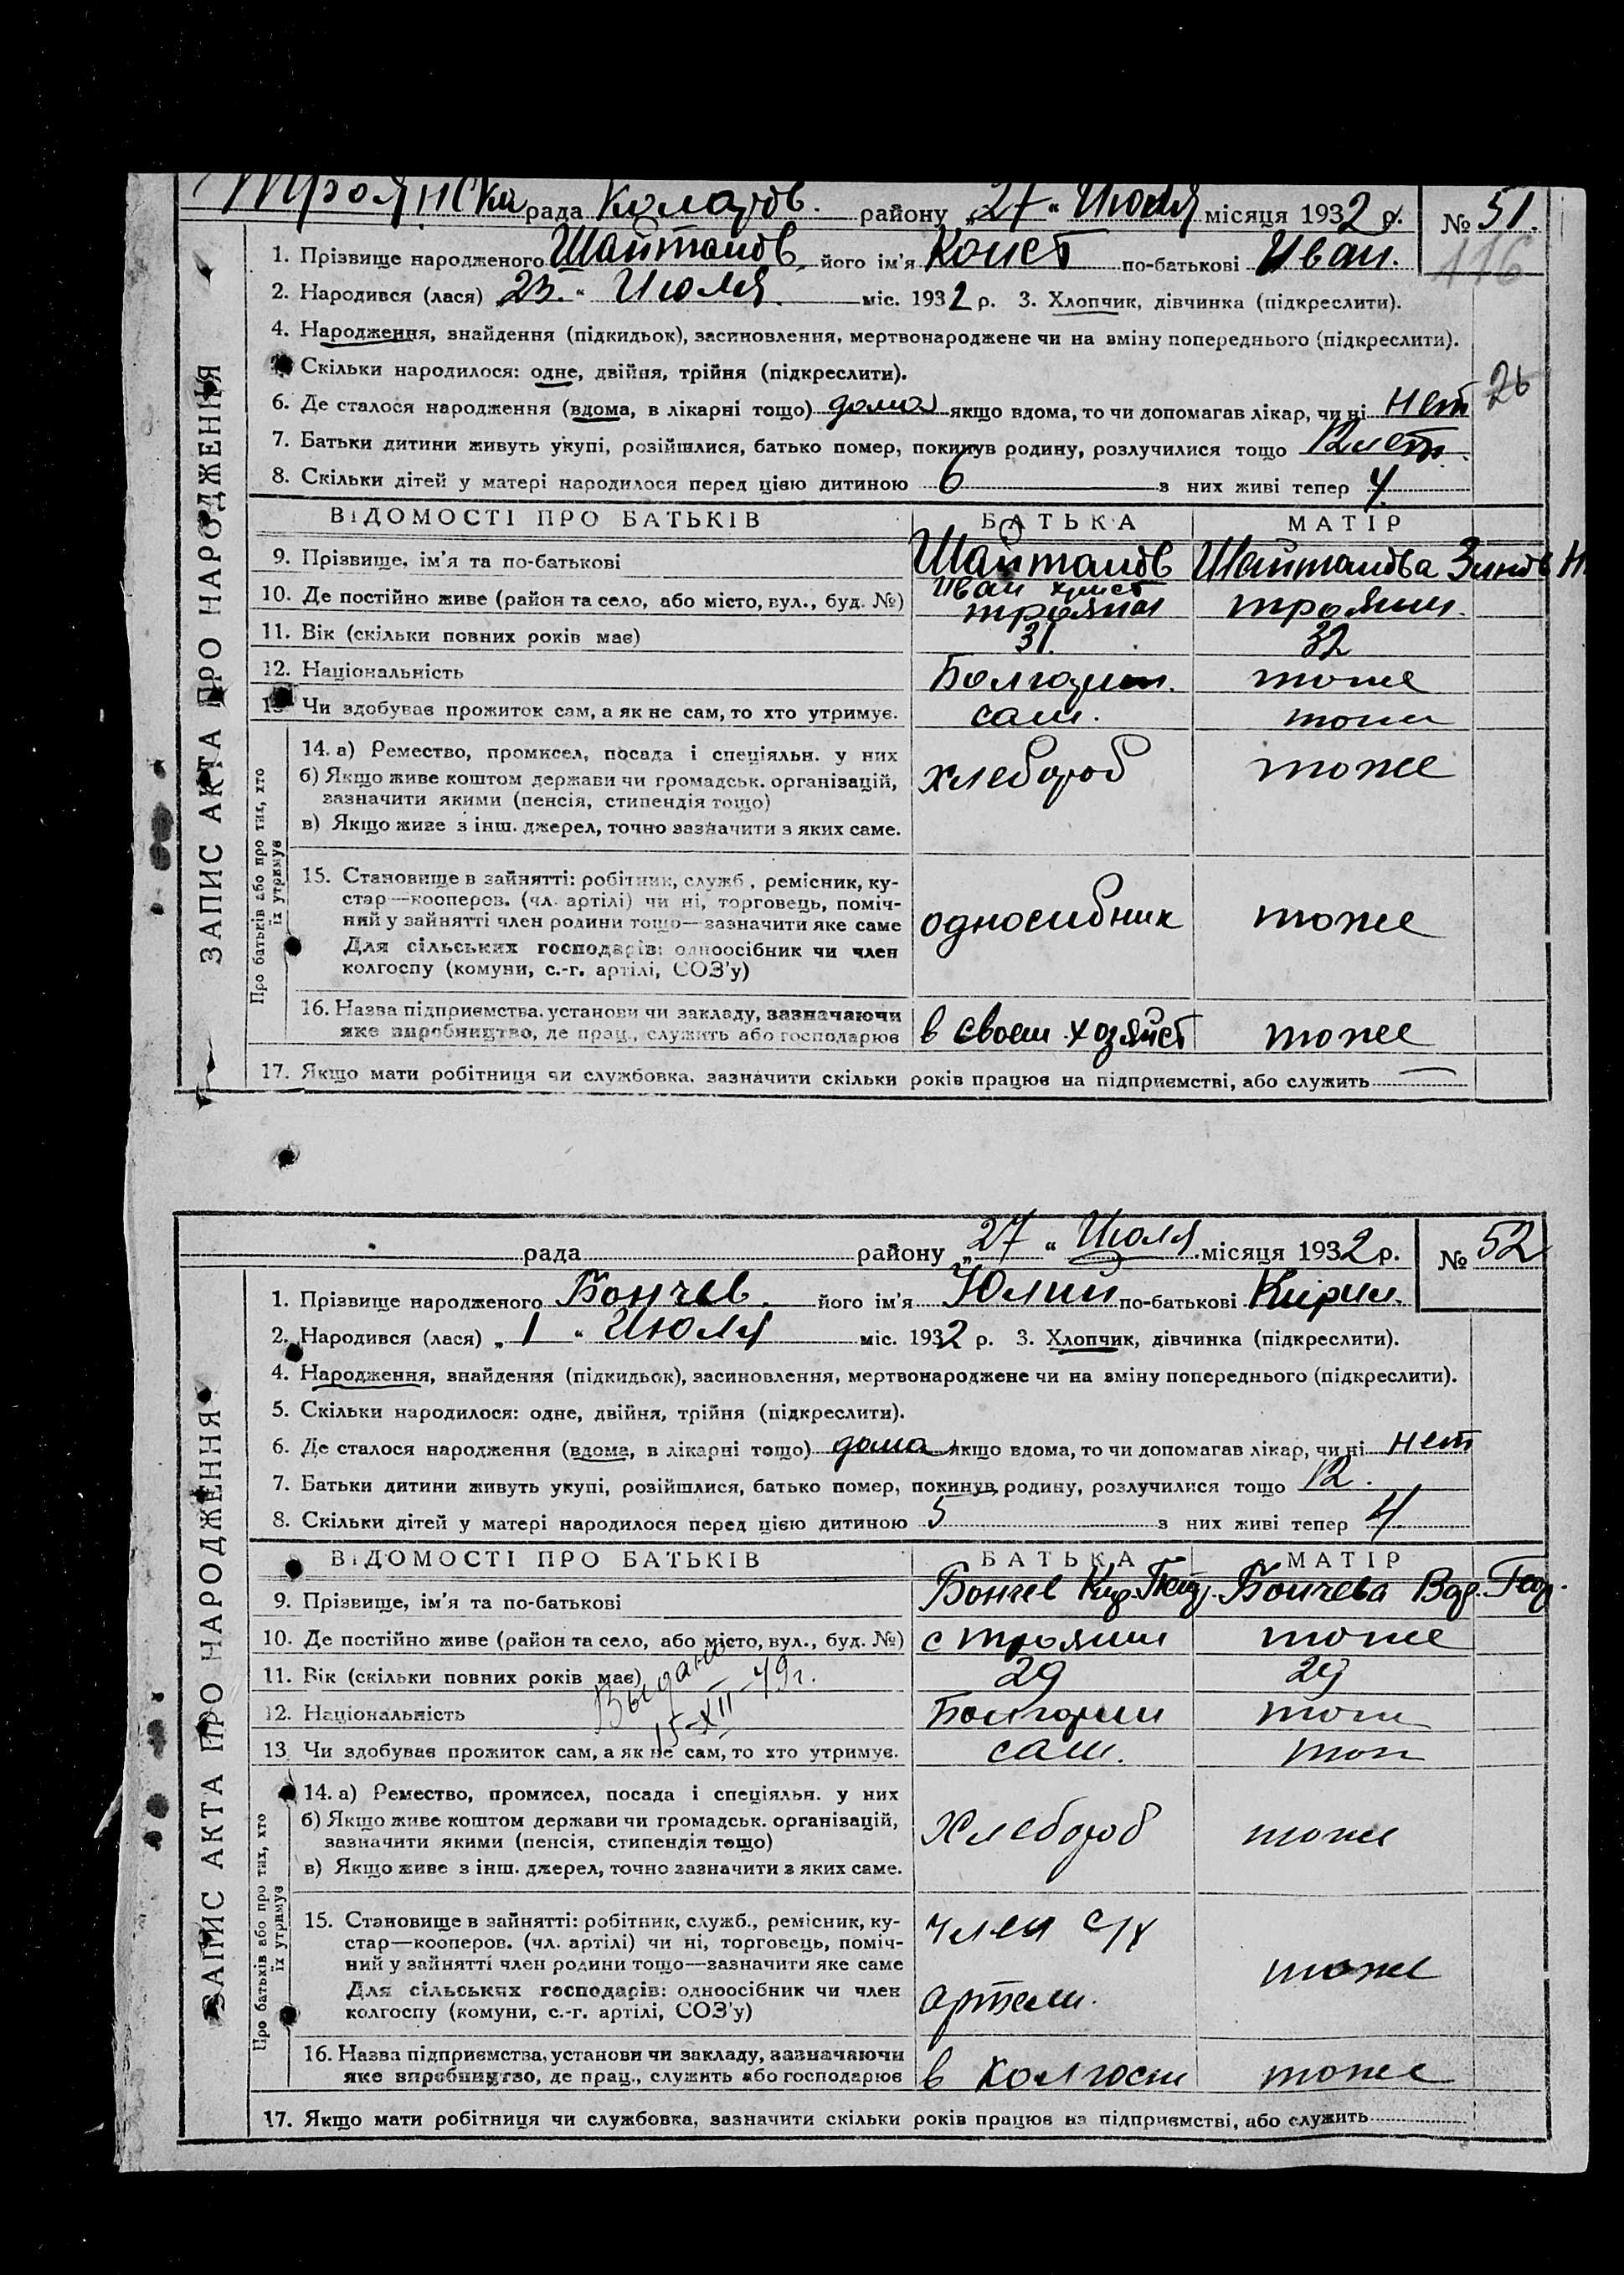 Троянска рада Коларов. району „27“ Июля місяця 1932 р. № 51.
116
1. Прізвище народженого Шайтанов, його ім'я Конст по-батькові Иван.
2. Народився (лася) 23. “ Июля. міс. 1932 р. 3. Хлопчик, дівчинка (підкреслити).
4. Народження, знайдення (підкидьок), засиновлення, мертвонароджене чи на зміну попереднього (підкреслити).
Скільки народилося: одне, двійня, трійня (підкреслити).
26
6. Де сталося народження (вдома, в лікарні тощо) дома якщо вдома, то чи допомагав лікар, чи ні нет
7. Батьки дитини живуть укупі, розійшлися, батько помер, покинув родину, розлучилися тощо 12 лет.
8. Скільки дітей у матері народилося перед цією дитиною 6 з них живі тепер 4.
ВІДОМОСТІ ПРО БАТЬКІВ БАТЬКА МАТІР
9. Прізвище, ім'я та по-батькові Шайтанов Иван Христ Шайтанова Зинов Н.
10. Де постійно живе (район та село, або місто, вул., буд. №) троян троян.
11. Вік (скільки повних років має) 31. 32
12. Національність Болгарин. тоже
13. Чи здобуває прожиток сам, а як не сам, то хто утримує. сам. тоже
Про батьків або про тих, хто їх утримує
14. а) Ремество, промисел, посада і спеціяльн. у них
б) Якщо живе коштом держави чи громадськ. організацій,
зазначити якими (пенсія, стипендія тощо) хлебороб тоже
в) Якщо живе з інш. джерел, точно зазначити з яких саме.
15. Становище в зайнятті: робітник, служб., ремісник, ку-
стар—кооперов. (чл. артілі) чи ні, торговець, поміч-
ний у зайнятті член родини тощо—зазначити яке саме односибник тоже
Для сільських господарів: одноосібник чи член
колгоспу (комуни, с.-г. артілі, СОЗ'у)
16. Назва підприємства, установи чи закладу, зазначаючи
яке виробництво, де прац., служить або господарює в своем хозяйст тоже
17. Якщо мати робітниця чи службовка, зазначити скільки років працює на підприємстві, або служить —
ЗАПИС АКТА ПРО НАРОДЖЕННЯ
рада району „27“ Июля місяця 1932 р. № 52
1. Прізвище народженого Бончев. його ім'я Юлий по-батькові Кирил.
2. Народився (лася) „1“ Июля міс. 1932 р. 3. Хлопчик, дівчинка (підкреслити).
4. Народження, знайдення (підкидьок), засиновлення, мертвонароджене чи на зміну попереднього (підкреслити).
5. Скільки народилося: одне, двійня, трійня (підкреслити).
6. Де сталося народження (вдома, в лікарні тощо) дома якщо вдома, то чи допомагав лікар, чи ні нет
7. Батьки дитини живуть укупі, розійшлися, батько помер, покинув родину, розлучилися тощо 12.
8. Скільки дітей у матері народилося перед цією дитиною 5 з них живі тепер 4
ВІДОМОСТІ ПРО БАТЬКІВ БАТЬКА МАТІР
9. Прізвище, ім'я та по-батькові Бончев Кир. Бончева Вар. Геор.
10. Де постійно живе (район та село, або місто, вул., буд. №) с троян тоже
11. Вік (скільки повних років має) 29 29
Выдано
15-XII-49г.
12. Національність Болгарин тоже
13. Чи здобуває прожиток сам, а як не сам, то хто утримує. сам. тож
Про батьків або про тих, хто їх утримує
14. а) Ремество, промисел, посада і спеціяльн. у них
б) Якщо живе коштом держави чи громадськ. організацій,
зазначити якими (пенсія, стипендія тощо) Хлебороб тоже
в) Якщо живе з інш. джерел, точно зазначити з яких саме.
15. Становище в зайнятті: робітник, служб., ремісник, ку-
стар—кооперов. (чл. артілі) чи ні, торговець, поміч- член с/х
ний у зайнятті член родини тощо—зазначити яке саме тоже
Для сільських господарів: одноосібник чи член артели.
колгоспу (комуни, с.-г. артілі, СОЗ'у)
16. Назва підприємства, установи чи закладу, зазначаючи
яке виробництво, де прац., служить або господарює в колгосп тоже
17. Якщо мати робітниця чи службовка, зазначити скільки років працює на підприємстві, або служить
ЗАПИС АКТА ПРО НАРОДЖЕННЯ